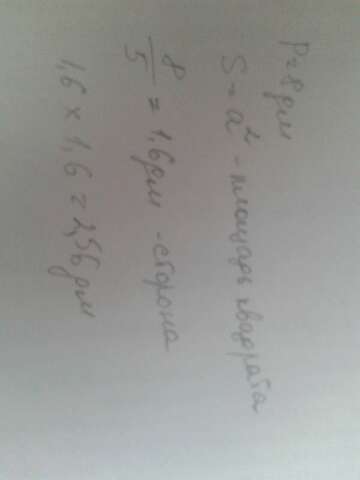 P=8 дм
S=a² - площадь квадрата
8/5 = 1,6 дм - сторона
1,6 × 1,6 = 2,56 дм